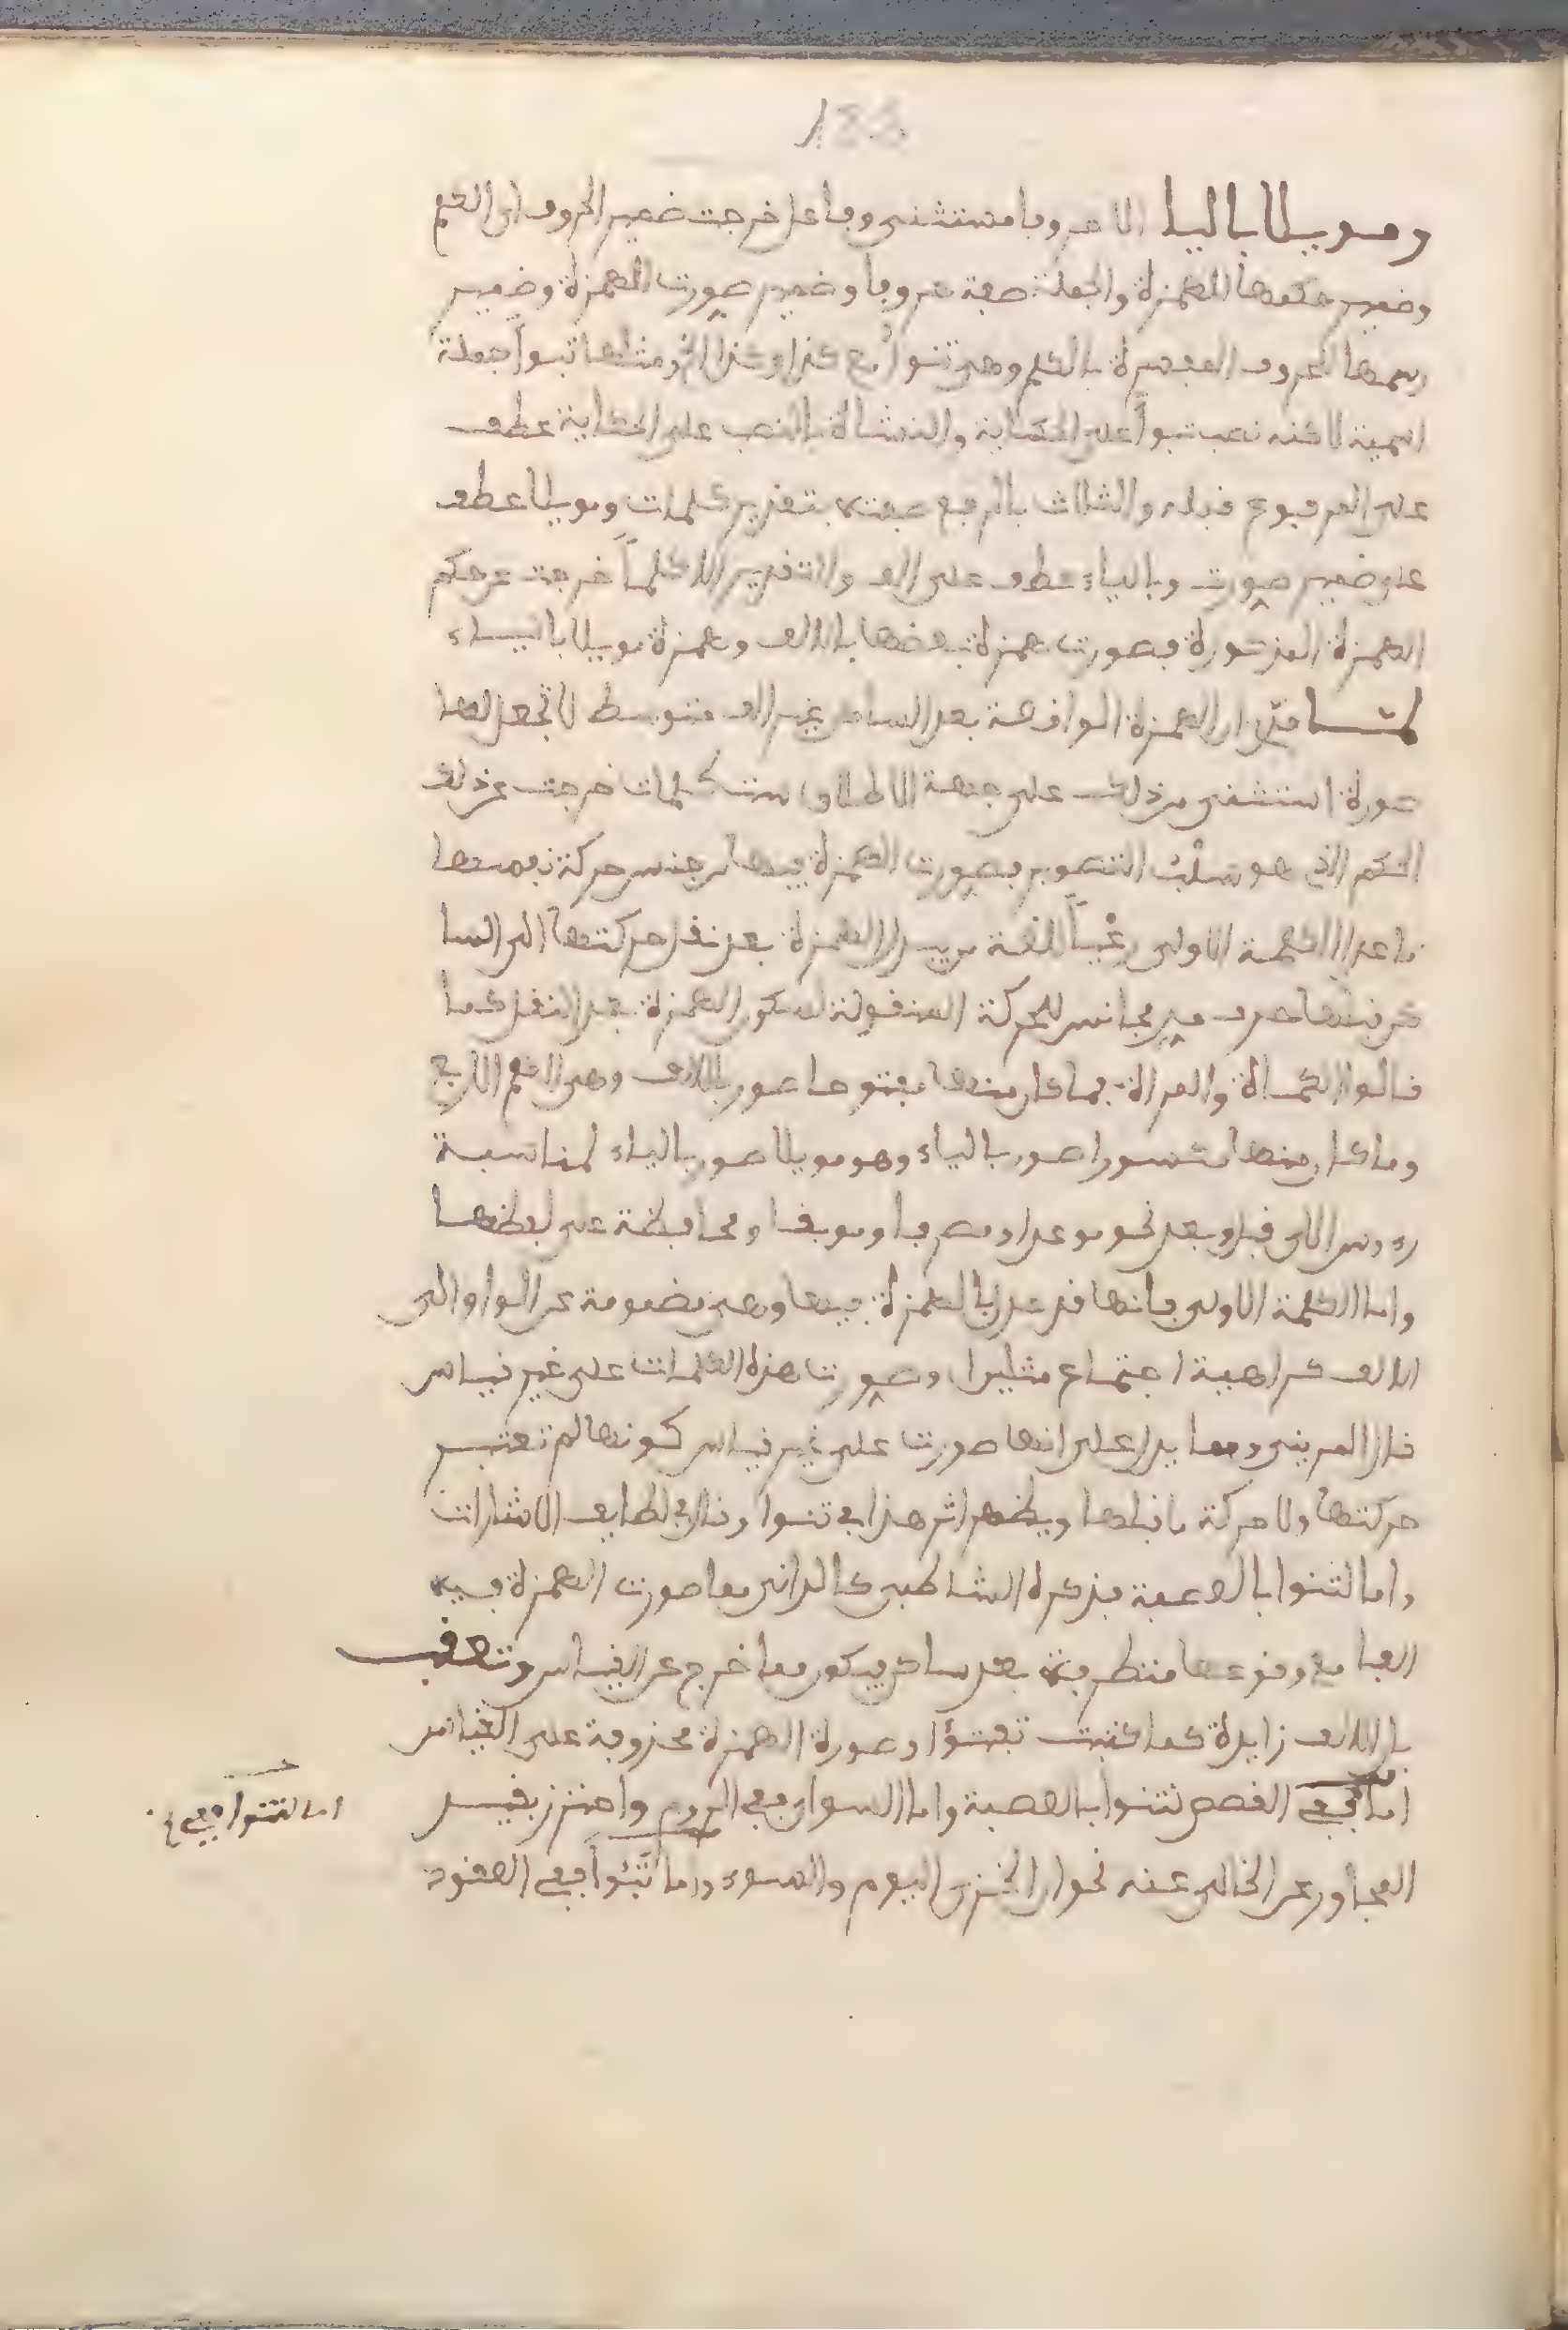 188
وموئلا باليا الا حروفا مستثنى وفاعل خرجت ضمير الحروف اي الكلم
وضمير حكمها للهمزة والجملة صفة حروفا وضمير صورت للهمزة وضمير
رسمها للحروف المفسرة بالكلم وهي تنوأ مع كذا وكذا الخ ومثلها تبوأ جملة
اسمية لاكنه نصب تبوأ على الحكاية والنشأة بالنصب على الحكاية عطف
على المرفوع قبله والثلاث بالرفع صفته بتقدير كلمات وموئلا عطف
على ضمير صورت وبالياء عطف على الف والتقدير الا كلماً خرجت عن حكم
الهمزة المذكورة فصورت همزة بعضها بالالف وهمزة موئلا بالياء
لمّا قدّم ان الهمزة الواقعة بعد الساكن غير الف متوسط لا تجعل لها
صورة استثنى من ذلك على جهة الاطلاق ست كلمات خرجت عن ذلك
الحكم الذي هو سلب التصوير فصورت الهمزة فيها من جنس حركة نفسها
ما عدا الكلمة الاولى رعْياً للغة من يبدل الهمزة بعد نقل حركتها الى السا
كن قبلها حرف مد مجانس للحركة المنقولة لسكون الهمزة بعد النقل كما
قالوا الكماة والمراة فما كان منها مفتوحا صور بالالف وهي الكلم الاربع
وما كان منها مكسورا صور بالياء وهو موئلا صور بالياء لمناسبة
رءوس الاي قبل وبعد نحو موعدا ومصرفا وموبقا ومحافظة على لفظها
واما الكلمة الاولى فانها قد عدل بالهمزة فيها وهي مضمومة عن الواو الى
الالف كراهية اجتماع مثلين وصورت هذه الكلمات على غير قياس
قال المريني ومما يدل على انها صورت على غير قياس كونها لم تعتبر
حركتها ولا حركة ما قبلها ويظهر اثر هذا في تنوا وقال في لطايف الاشارات
واما لتنوا بالعصبة فذكره الشاطبي كالداني مما صورت الهمزة فيه
الفا مع وقوعها متطرفة بعد ساكن فيكون مما خرج عن القياس وتعقب
بان الالف زايدة كما كتبت تفتؤا وصورة الهمزة محذوفة على القياس
اما ففي القصص لتنوا بالعصبة واما السوأى ففي الروم واحترز بقيد
المجاور عن الخالي عنه نحو ان الخزي اليوم والسوء واما تبوأ ففي العقود
اما لتنوا ففي